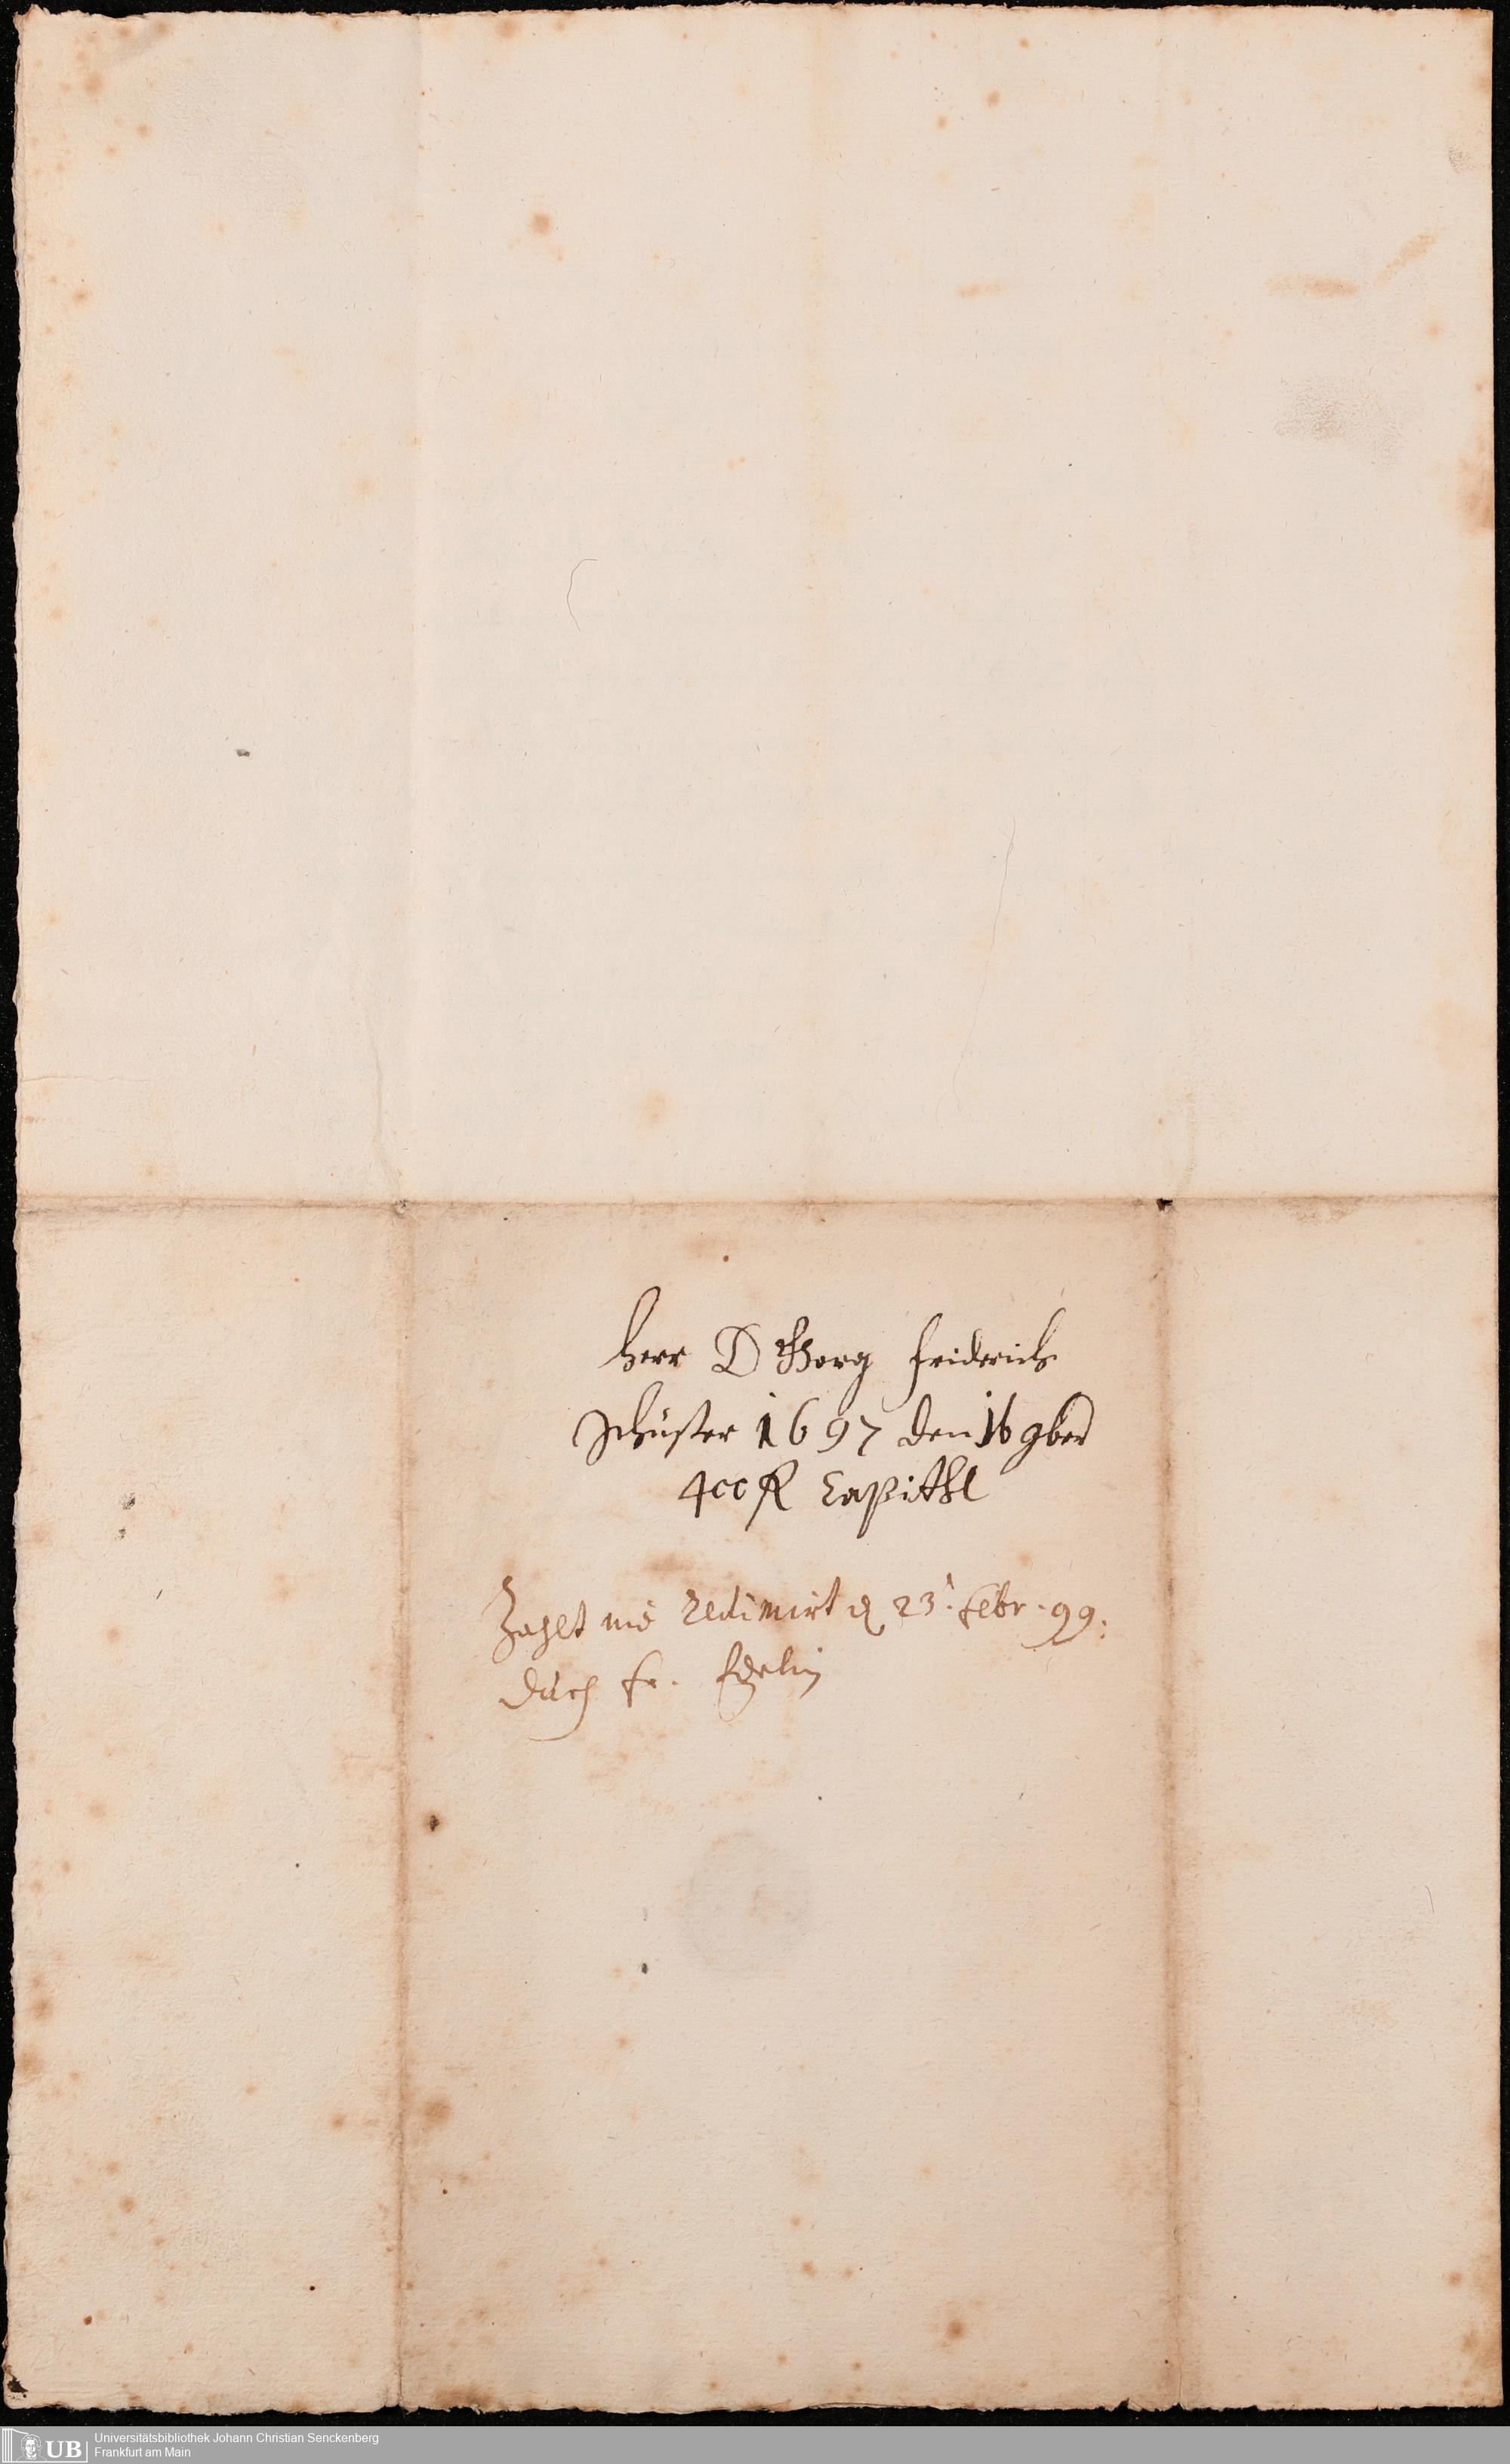 Herr D Georg Friderich
Schüster 1697 den 16 9ber
400 fl Capithl
Zahlt 23. Febr. 99.
durch fr.
Universitätsbibliothek Johann Christian Senckenberg
Frankfurt am Main
UB